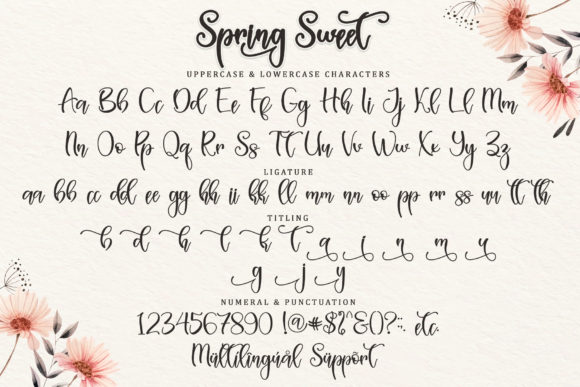 Spring Sweet
UPPERCASE & LOWERCASE CHARACTERS
Aa Bb Cc Dd Ee Ff Gg Hh Ii Jj Kk Ll Mm
Nn Oo Pp Qq Rr Ss Tt Uu Vv Ww Xx Yy Zz
LIGATURE
aa bb cc dd ee gg hh ii kk ll mm nn oo pp rr ss uu tt th
TITLING
b d h l k t a i n m u
g j y
NUMERAL & PUNCTUATION
1234567890 !@#$%^&()?:. etc.
Múltilingúál Súppört